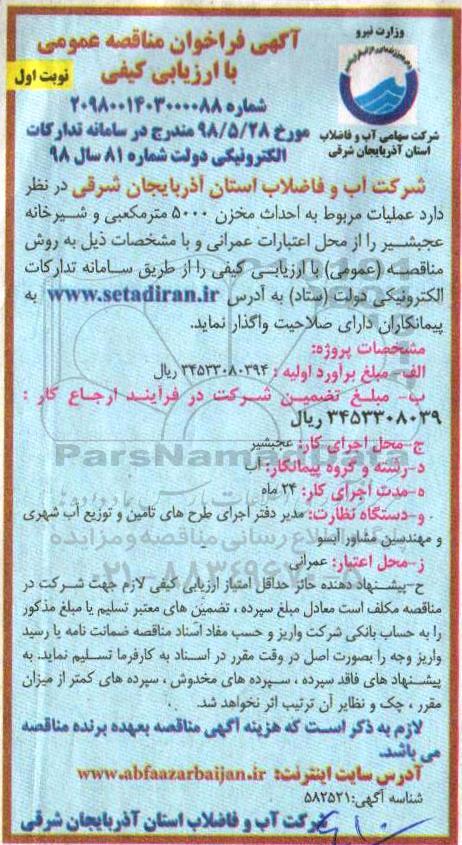 وزارت نیرو
شرکت سهامی آب و فاضلاب
استان آذربایجان شرقی
آگهی فراخوان مناقصه عمومی
با ارزیابی کیفی
نوبت اول
شماره ۲۰۹۸۰۰۱۴۰۳۰۰۰۰۸۸
مورخ ۹۸/۵/۲۸ مندرج در سامانه تدارکات
الکترونیکی دولت شماره ۸۱ سال ۹۸
شرکت آب و فاضلاب استان آذربایجان شرقی در نظر
دارد عملیات مربوط به احداث مخزن ۵۰۰۰ مترمکعبی و شیرخانه
عجبشیر را از محل اعتبارات عمرانی و با مشخصات ذیل به روش
مناقصه (عمومی) با ارزیابی کیفی را از طریق سامانه تدارکات
الکترونیکی دولت (ستاد) به آدرس www.setadiran.ir به
پیمانکاران دارای صلاحیت واگذار نماید.
مشخصات پروژه:
الف- مبلغ برآورد اولیه : ۳۴۵۳۳۰۸۰۳۹۴ ریال
ب- مبلغ تضمین شرکت در فرآیند ارجاع کار :
۳۴۵۳۳۰۸۰۳۹ ریال
ج-محل اجرای کار: عجبشیر
د-رشته و گروه پیمانکار: آب
ه-مدت اجرای کار: ۲۴ ماه
و-دستگاه نظارت: مدیر دفتر اجرای طرح های تامین و توزیع آب شهری
و مهندسین مشاور آبسو
ز-محل اعتبار: عمرانی
ح-پیشنهاد دهنده حائز حداقل امتیاز ارزیابی کیفی لازم جهت شرکت در
مناقصه مکلف است معادل مبلغ سپرده ، تضمین های معتبر تسلیم یا مبلغ مذکور
را به حساب بانکی شرکت واریز و حسب مفاد اسناد مناقصه ضمانت نامه یا رسید
واریز وجه را بصورت اصل در وقت مقرر در اسناد به کارفرما تسلیم نماید. به
پیشنهاد های فاقد سپرده ، سپرده های مخدوش ، سپرده های کمتر از میزان
مقرر ، چک و نظایر آن ترتیب اثر نخواهد شد.
لازم به ذکر است که هزینه آگهی مناقصه بعهده برنده مناقصه
می باشد.
آدرس سایت اینترنت: www.abfaazarbaijan.ir
شناسه آگهی:۵۸۲۵۲۱
شرکت آب و فاضلاب استان آذربایجان شرقی
ParsNamadData